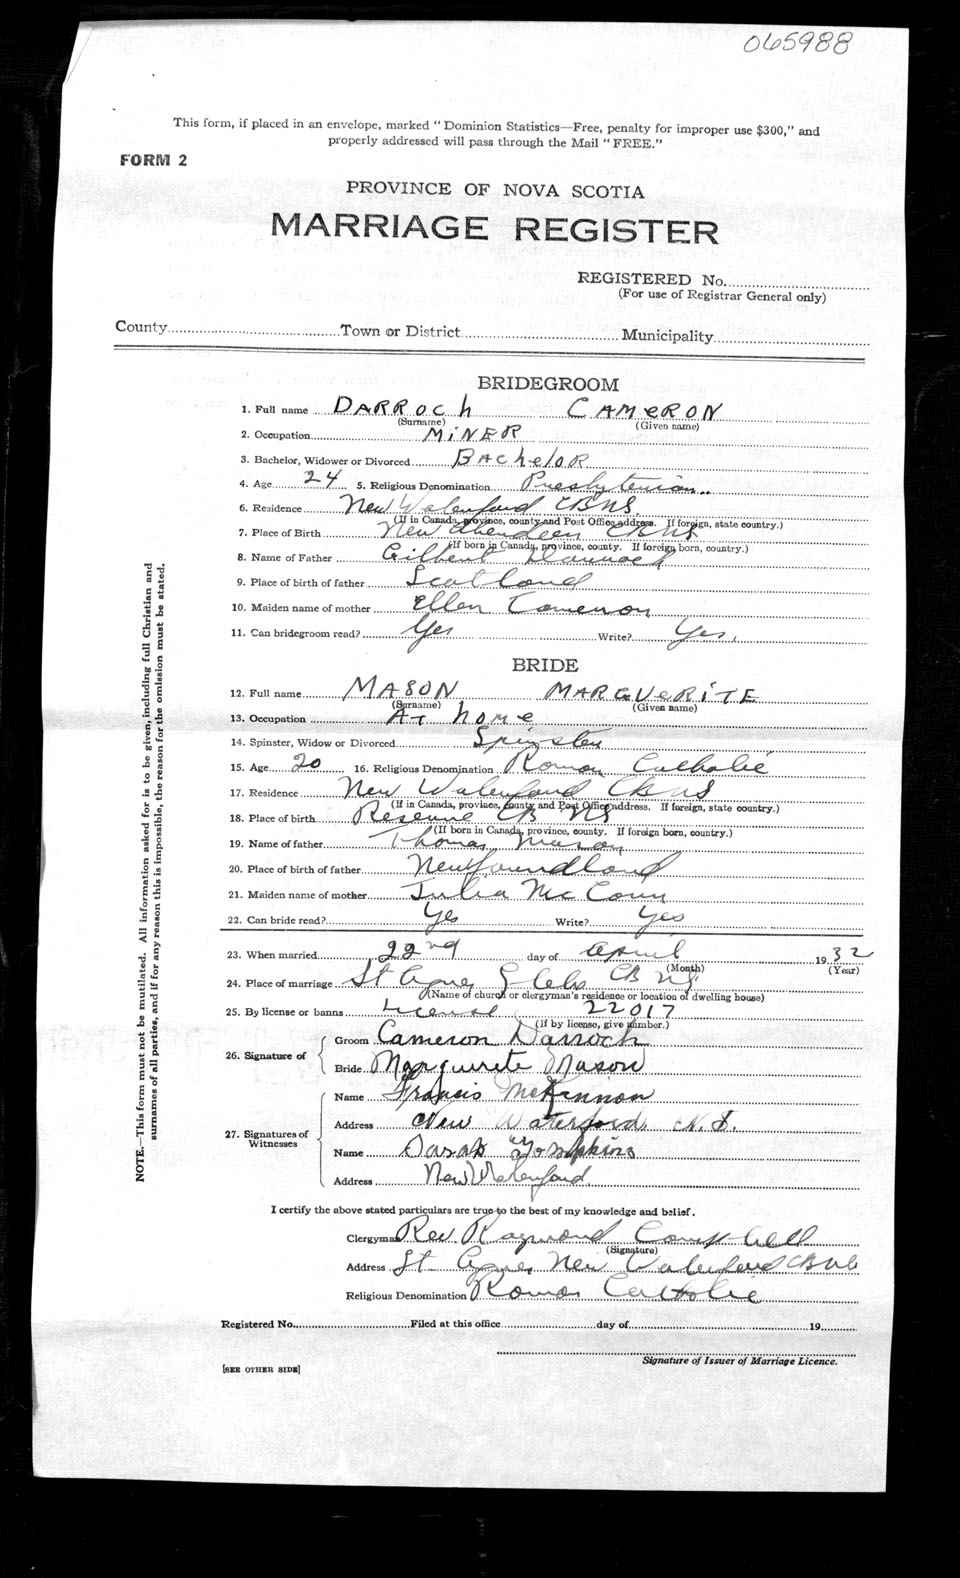 065988
This form, if placed in an envelope, marked "Dominion Statistics—Free, penalty for improper use $300," and
properly addressed will pass through the Mail "FREE."
FORM 2
PROVINCE OF NOVA SCOTIA
MARRIAGE REGISTER
REGISTERED No.
(For use of Registrar General only)
County Town or District Municipality
BRIDEGROOM
1. Full name DARROCH CAMERON
(Surname) (Given name)
2. Occupation MINER
3. Bachelor, Widower or Divorced BACHELOR
4. Age 24 5. Religious Denomination Presbyterian
6. Residence New Waterford CB NS
(If in Canada, province, county and Post Office address. If foreign, state country.)
7. Place of Birth New Aberdeen CB NS
(If born in Canada, province, county. If foreign born, country.)
8. Name of Father Gilbert Darroch
9. Place of birth of father Scotland
10. Maiden name of mother Ellen Cameron
11. Can bridegroom read? Yes Write? Yes.
BRIDE
12. Full name MASON MARGUERITE
(Surname) (Given name)
13. Occupation AT home
14. Spinster, Widow or Divorced Spinster
15. Age 20 16. Religious Denomination Roman Catholic
17. Residence New Waterford CB NS
(If in Canada, province, county and Post Office address. If foreign, state country.)
18. Place of birth Reserve CB NS
(If born in Canada, province, county. If foreign born, country.)
19. Name of father Thomas Mason
20. Place of birth of father Newfoundland
21. Maiden name of mother Julia Mc
22. Can bride read? Yes Write? Yes
23. When married 22nd day of April 1932
(Month) (Year)
24. Place of marriage St Agnes Glebe CB NS
(Name of church or clergyman's residence or location of dwelling house)
25. By license or banns License 22017
(If by license, give number.)
26. Signature of
Groom Cameron Darroch
Bride Marguerite Mason
27. Signatures of Witnesses
Name Francis McKinnon
Address New Waterford, N.S.
Name Sarah Tompkins
Address New Waterford
I certify the above stated particulars are true to the best of my knowledge and belief.
Clergyman Rev Raymond Campbell
(Signature)
Address St Agnes New Waterford CB NS
Religious Denomination Roman Catholic
Registered No. Filed at this office day of 19
Signature of Issuer of Marriage Licence.
[SEE OTHER SIDE]
NOTE.—This form must not be mutilated. All information asked for is to be given, including full Christian and
surnames of all parties, and if for any reason this is impossible, the reason for the omission must be stated.